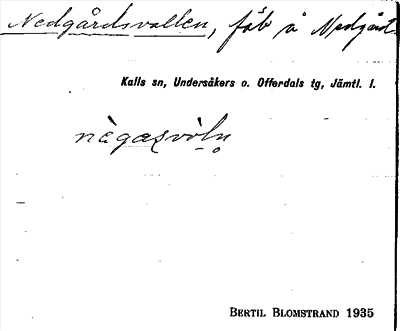 Nedgårdsvallen, fäb å Nedgård
Kalls sn, Undersåkers o. Offerdals tg, Jämtl. l.
BERTIL BLOMSTRAND 1935